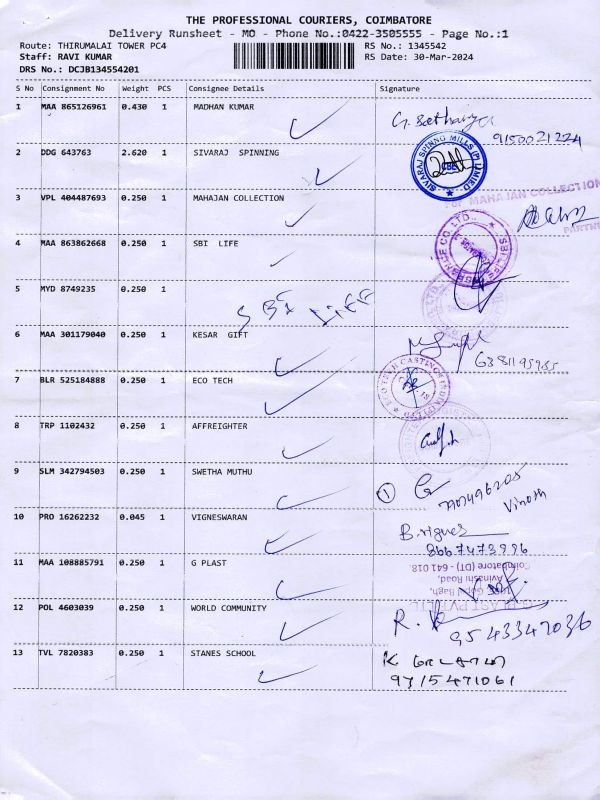 THE PROFESSIONAL COURIERS, COIMBATORE
Delivery Runsheet - MO - Phone No.:0422-3505555 - Page No.:1
Route: THIRUMALAI TOWER PC4 RS No.: 1345542
Staff: RAVI KUMAR RS Date: 30-Mar-2024
DRS No.: DCJB134554201
S No Consignment No Weight PCS Consignee Details Signature
1 MAA 865126961 0.430 1 MADHAN KUMAR
9150021224
2 DDG 643763 2.620 1 SIVARAJ SPINNING
SIVARAJ SPINNG MILLS (P) LIMIED
CBE
3 VPL 404487693 0.250 1 MAHAJAN COLLECTION
MAHAJAN COLLECTION
PARTNER
4 MAA 863862668 0.250 1 SBI LIFE
5 MYD 8749235 0.250 1
SBI LIFE
6 MAA 301179040 0.250 1 KESAR GIFT
6381195985
7 BLR 525184888 0.250 1 ECO TECH
8 TRP 1102432 0.250 1 AFFREIGHTER
9 SLM 342794503 0.250 1 SWETHA MUTHU
1
Vinoth
10 PRO 16262232 0.045 1 VIGNESWARAN
B.vignes
8667473996
11 MAA 108885791 0.250 1 G PLAST
Coimbatore (DT) - 641 018.
Avinashi Road,
12 POL 4603039 0.250 1 WORLD COMMUNITY
R.
9543347036
13 TVL 7820383 0.250 1 STANES SCHOOL
K
9715471061